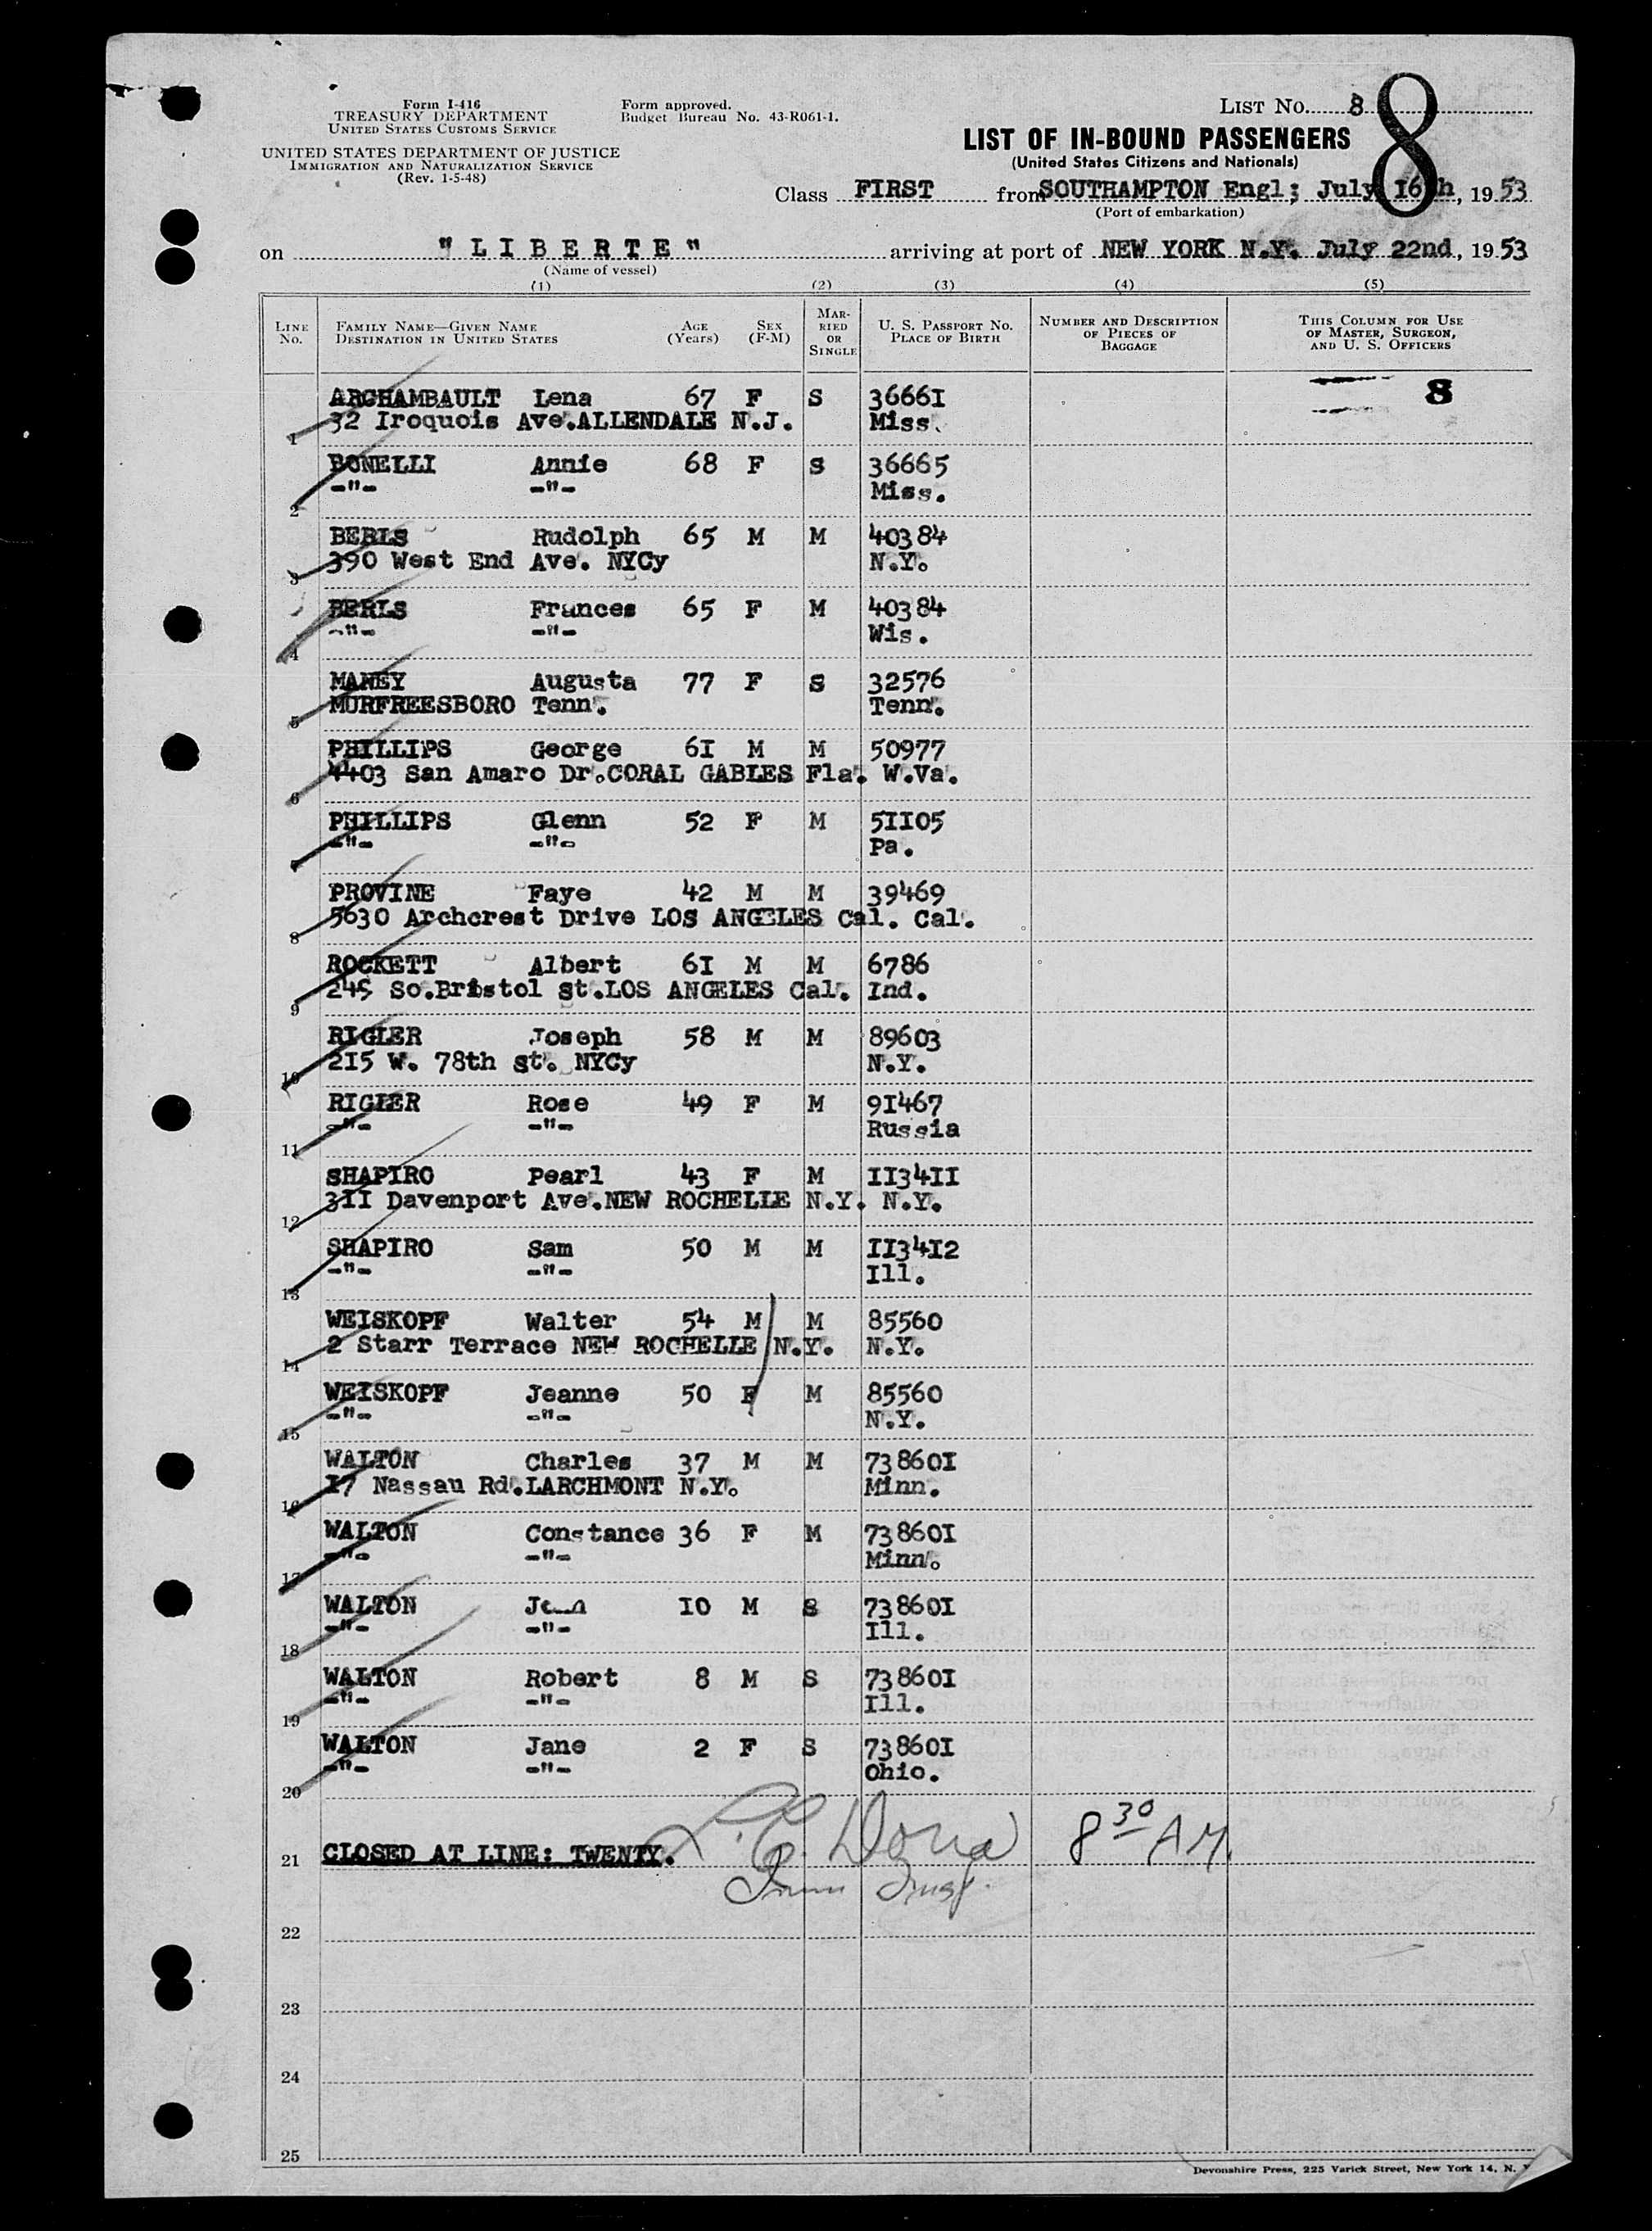 Form I-416
TREASURY DEPARTMENT
UNITED STATES CUSTOMS SERVICE
UNITED STATES DEPARTMENT OF JUSTICE
IMMIGRATION AND NATURALIZATION SERVICE
(Rev. 1-5-48)
Form approved.
Budget Bureau No. 43-R061-1.
LIST No. 8
8
LIST OF IN-BOUND PASSENGERS
(United States Citizens and Nationals)
Class FIRST from SOUTHAMPTON Engl; July 16th, 1953
(Port of embarkation)
on "LIBERTE" arriving at port of NEW YORK N.Y. July 22nd, 1953
(Name of vessel)
(1) (2) (3) (4) (5)
LINE No. FAMILY NAME—GIVEN NAME DESTINATION IN UNITED STATES AGE (Years) SEX (F-M) MARRIED OR SINGLE U. S. PASSPORT No. PLACE OF BIRTH NUMBER AND DESCRIPTION OF PIECES OF BAGGAGE THIS COLUMN FOR USE OF MASTER, SURGEON, AND U. S. OFFICERS
ARCHAMBAULT Lena 67 F S 36661 8
1 32 Iroquois Ave.ALLENDALE N.J. Miss.
BONELLI Annie 68 F S 36665
2 -"- -"- Miss.
BERLS Rudolph 65 M M 40384
3 390 West End Ave. NYCy N.Y.
BERLS Frances 65 F M 40384
4 -"- -"- Wis.
MANEY Augusta 77 F S 32576
5 MURFREESBORO Tenn. Tenn.
PHILLIPS George 61 M M 50977
6 4403 San Amaro Dr.CORAL GABLES Fla. W.Va.
PHILLIPS Glenn 52 F M 51105
7 -"- -"- Pa.
PROVINE Faye 42 M M 39469
8 5630 Archcrest Drive LOS ANGELES Cal. Cal.
ROCKETT Albert 61 M M 6786
9 245 So.Bristol St.LOS ANGELES Cal. Ind.
RIGLER Joseph 58 M M 89603
10 215 W. 78th St. NYCy N.Y.
RIGLER Rose 49 F M 91467
11 -"- -"- Russia
SHAPIRO Pearl 43 F M 113411
12 311 Davenport Ave.NEW ROCHELLE N.Y. N.Y.
SHAPIRO Sam 50 M M 113412
13 -"- -"- Ill.
WEISKOPF Walter 54 M M 85560
14 2 Starr Terrace NEW ROCHELLE N.Y. N.Y.
WEISKOPF Jeanne 50 F M 85560
15 -"- -"- N.Y.
WALTON Charles 37 M M 738601
16 17 Nassau Rd.LARCHMONT N.Y. Minn.
WALTON Constance 36 F M 738601
17 -"- -"- Minn.
WALTON 10 M S 738601
18 -"- -"- Ill.
WALTON Robert 8 M S 738601
19 -"- -"- Ill.
WALTON Jane 2 F S 738601
20 -"- -"- Ohio.
21 CLOSED AT LINE: TWENTY. 8 30 AM.
22
23
24
25
Devonshire Press, 225 Varick Street, New York 14, N.